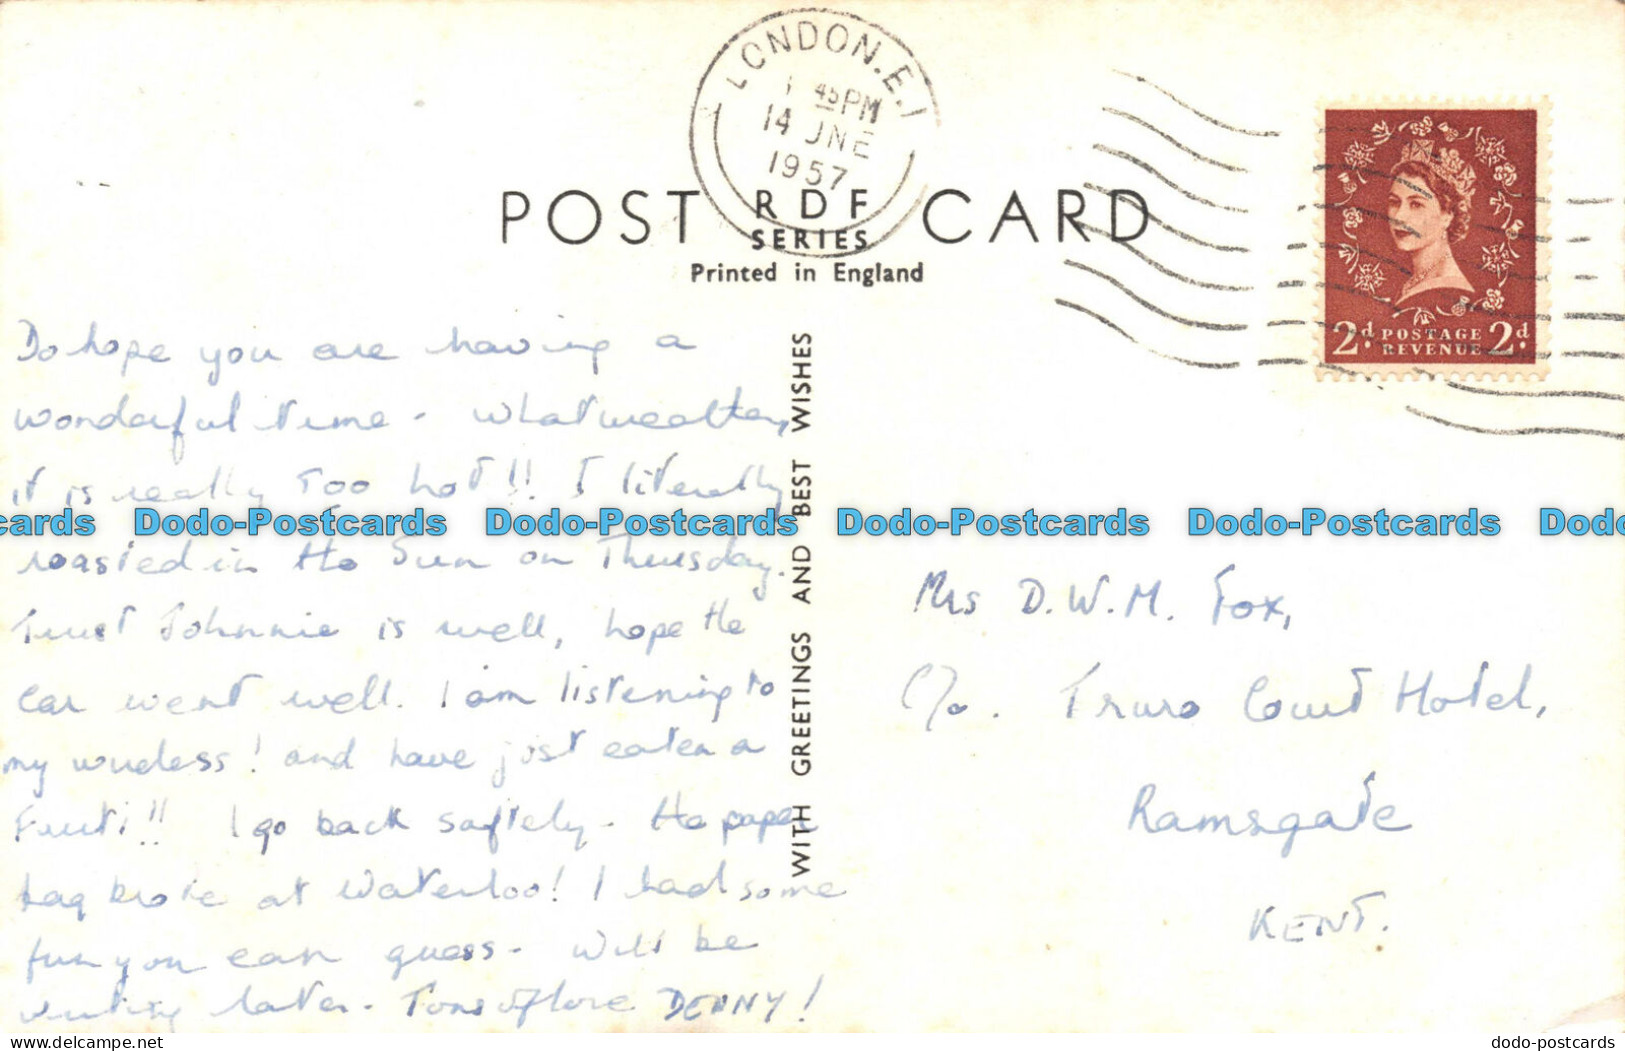 LONDON.E.1
1 45 PM
14 JNE
1957
POST CARD
RDF
SERIES
Printed in England
2d POSTAGE REVENUE 2d
WITH GREETINGS AND BEST WISHES
Do hope you are having a
wonderful time - What weather,
it is really Too hot!! I literally
roasted in the Sun on Thursday.
Trust Johnnie is well, hope the
car went well. I am listening to
my wireless! and have just eaten a
Fruti!! I go back safely - the paper
bag broke at Waterloo! I had some
fun you can guess - Will be
writing later - Tons of love DENNY!
Mrs D.W.M. Fox,
C/o. Truro Court Hotel,
Ramsgate
KENT.
cards Dodo-Postcards Dodo-Postcards Dodo-Postcards Dodo-Postcards Dodo
delcampe.net
dodo-postcards